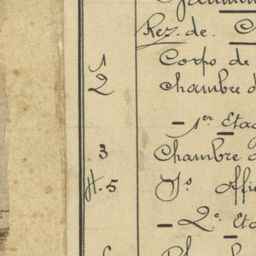 Rez. de
1 Corps de
2 Chambre d
- 1er Etag
3 Chambre d
4. 5 Jo Offi
- 2o Eta